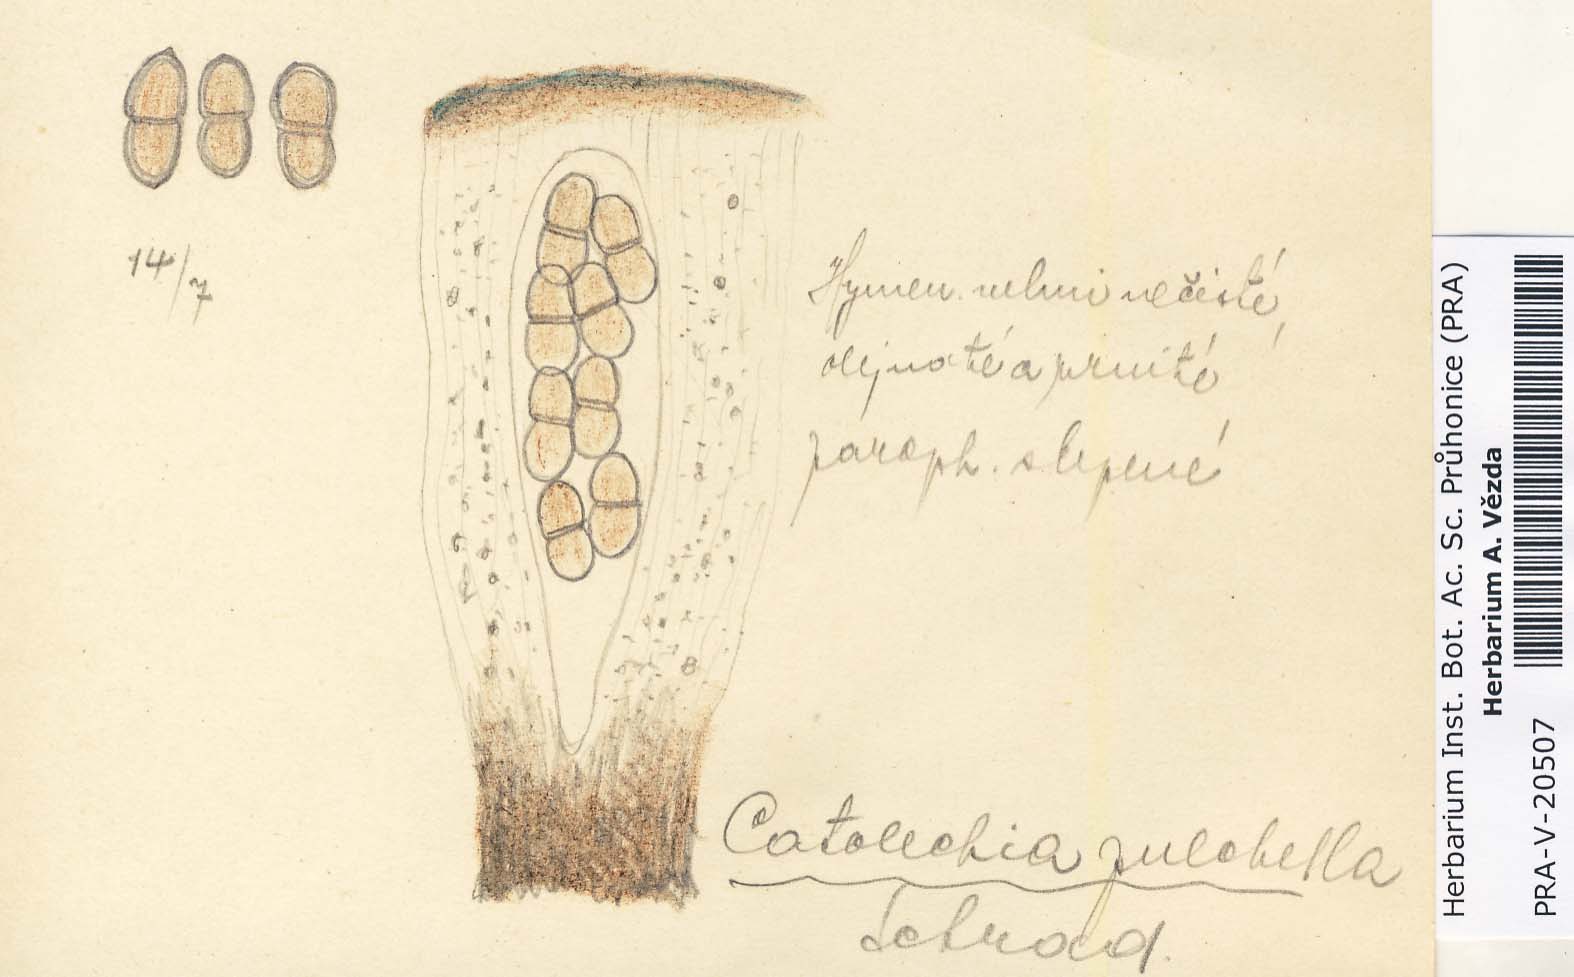 14/7
Hymen. velmi nečisté,
olejnaté a zrnité,
paraph. slepené
Catolechia pulchella
Schrad.
Herbarium Inst. Bot. Ac. Sc. Průhonice (PRA)
Herbarium A. Vězda
PRA-V-20507